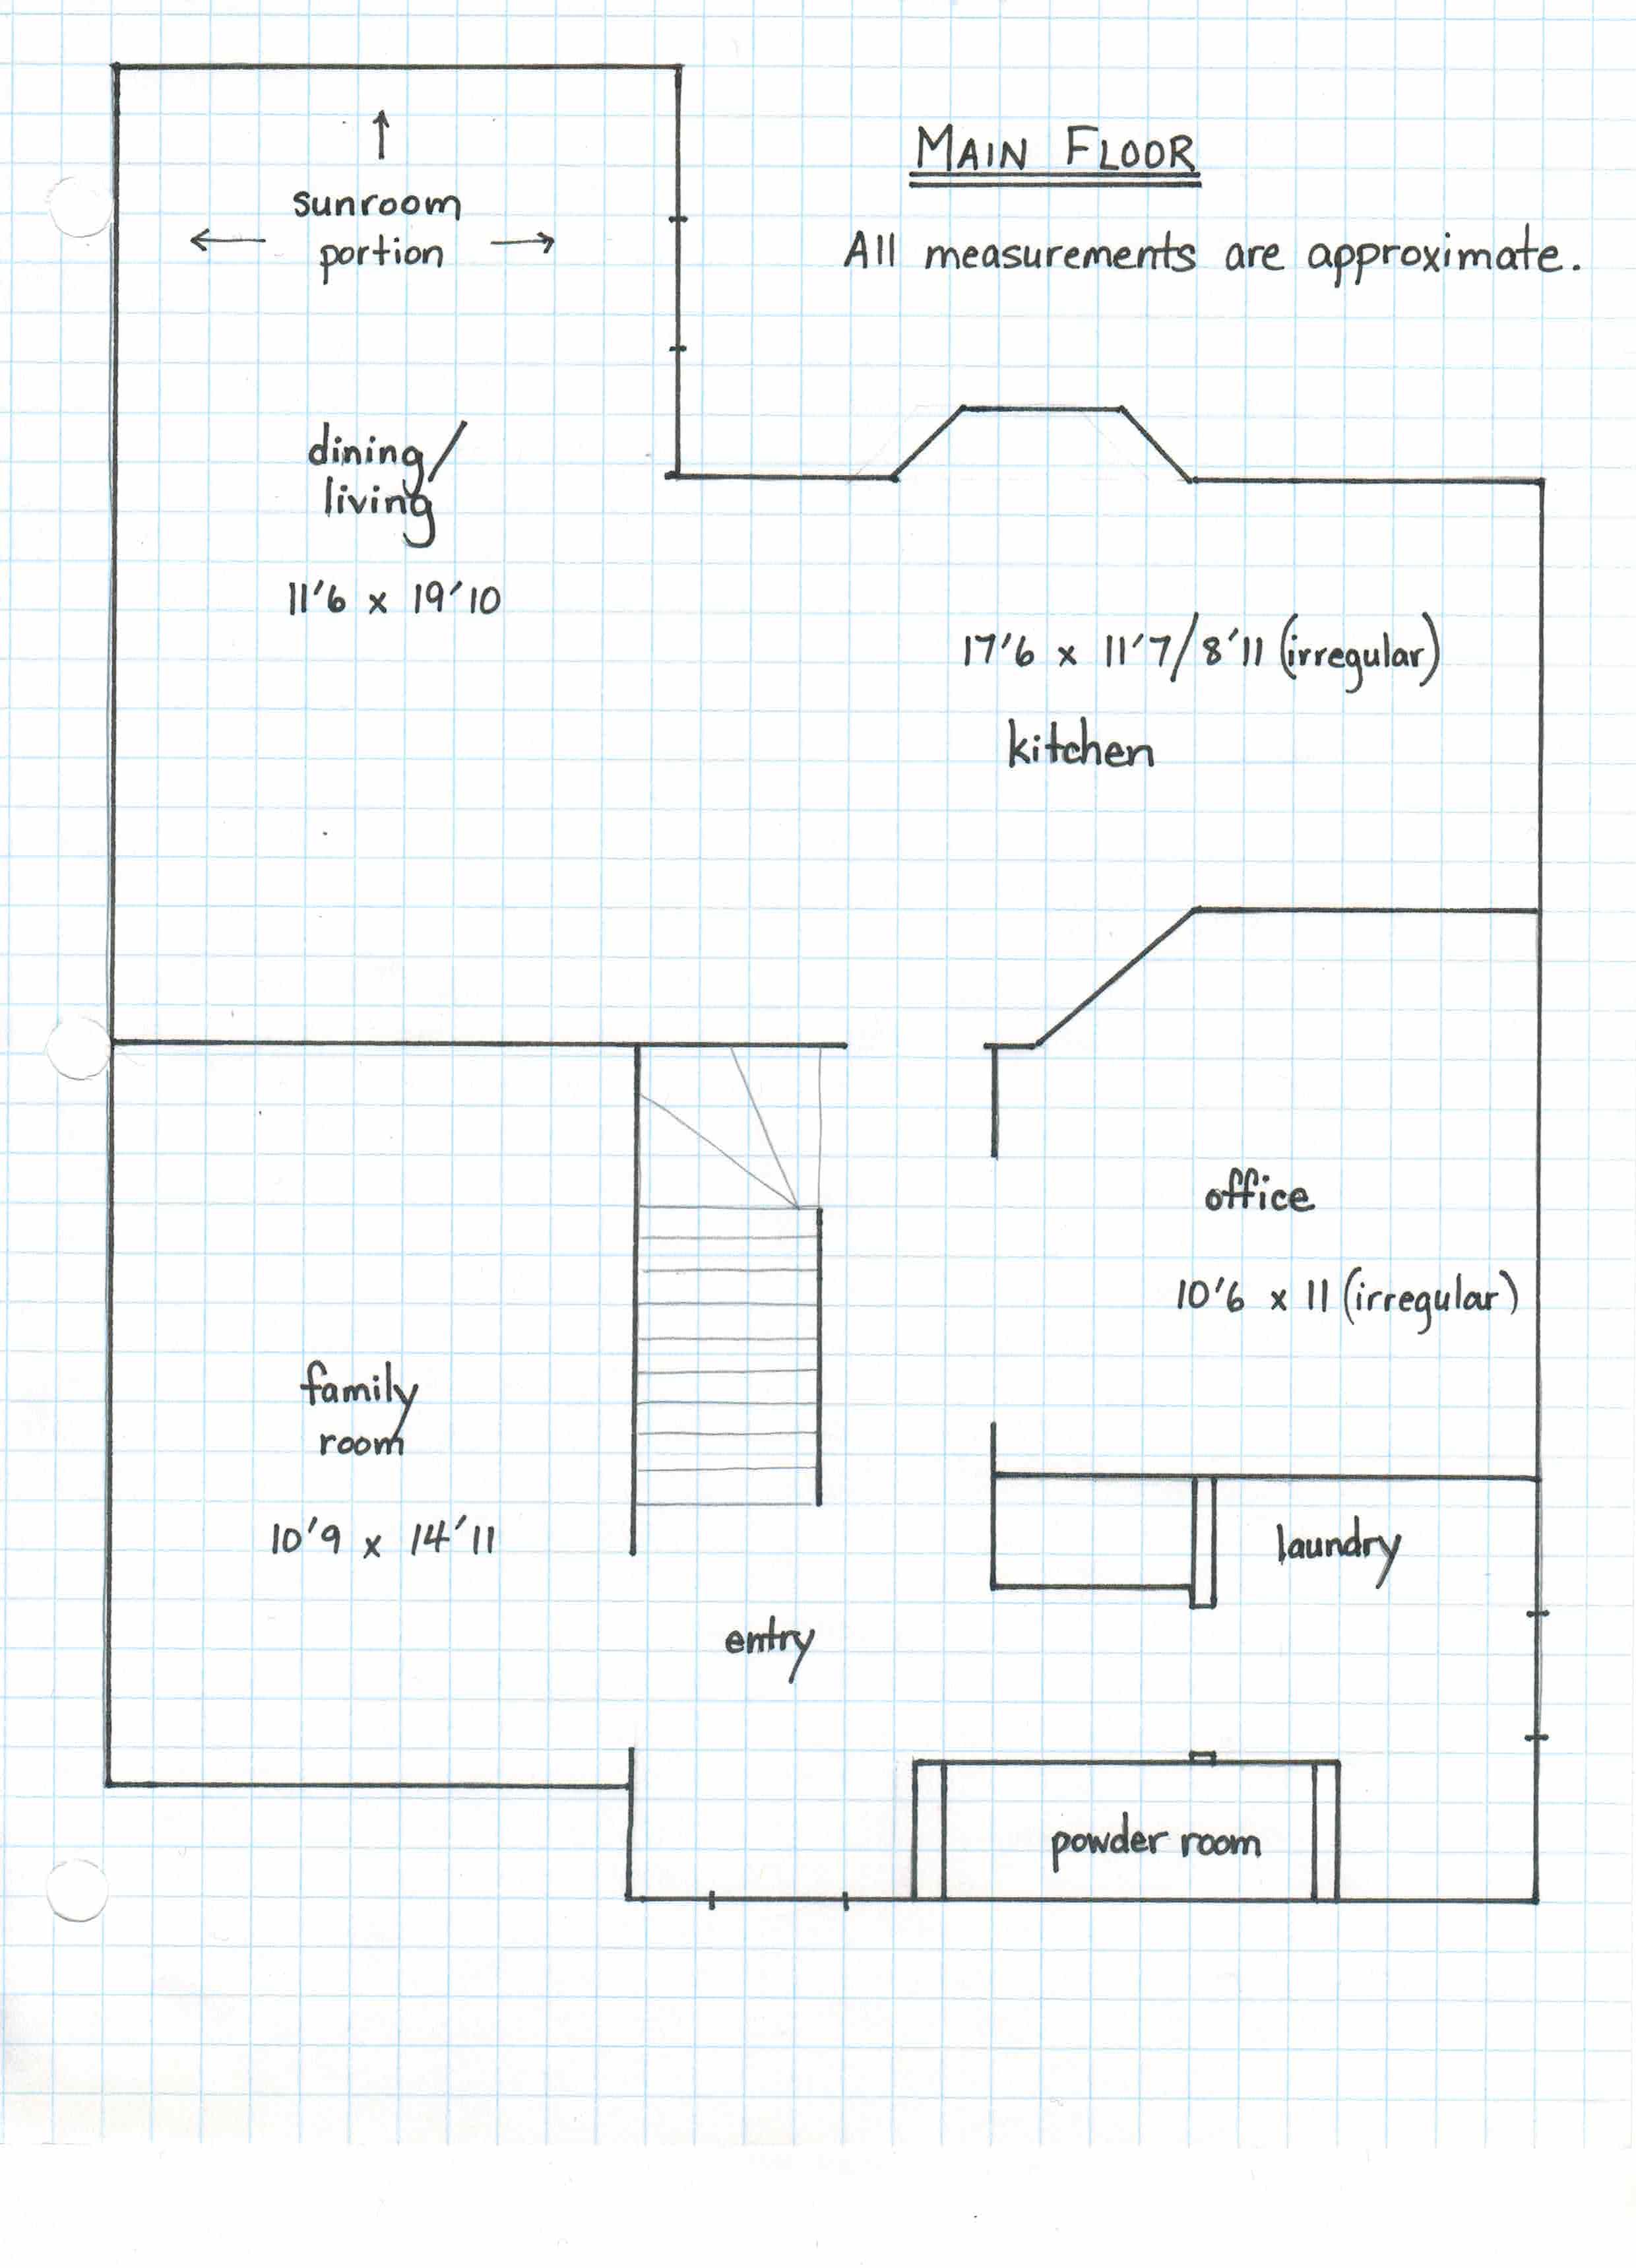 MAIN FLOOR
All measurements are approximate.
sunroom
portion
dining/
living
11'6 x 19'10
17'6 x 11'7/8'11 (irregular)
kitchen
office
10'6 x 11 (irregular)
family
room
10'9 x 14'11
laundry
entry
powder room